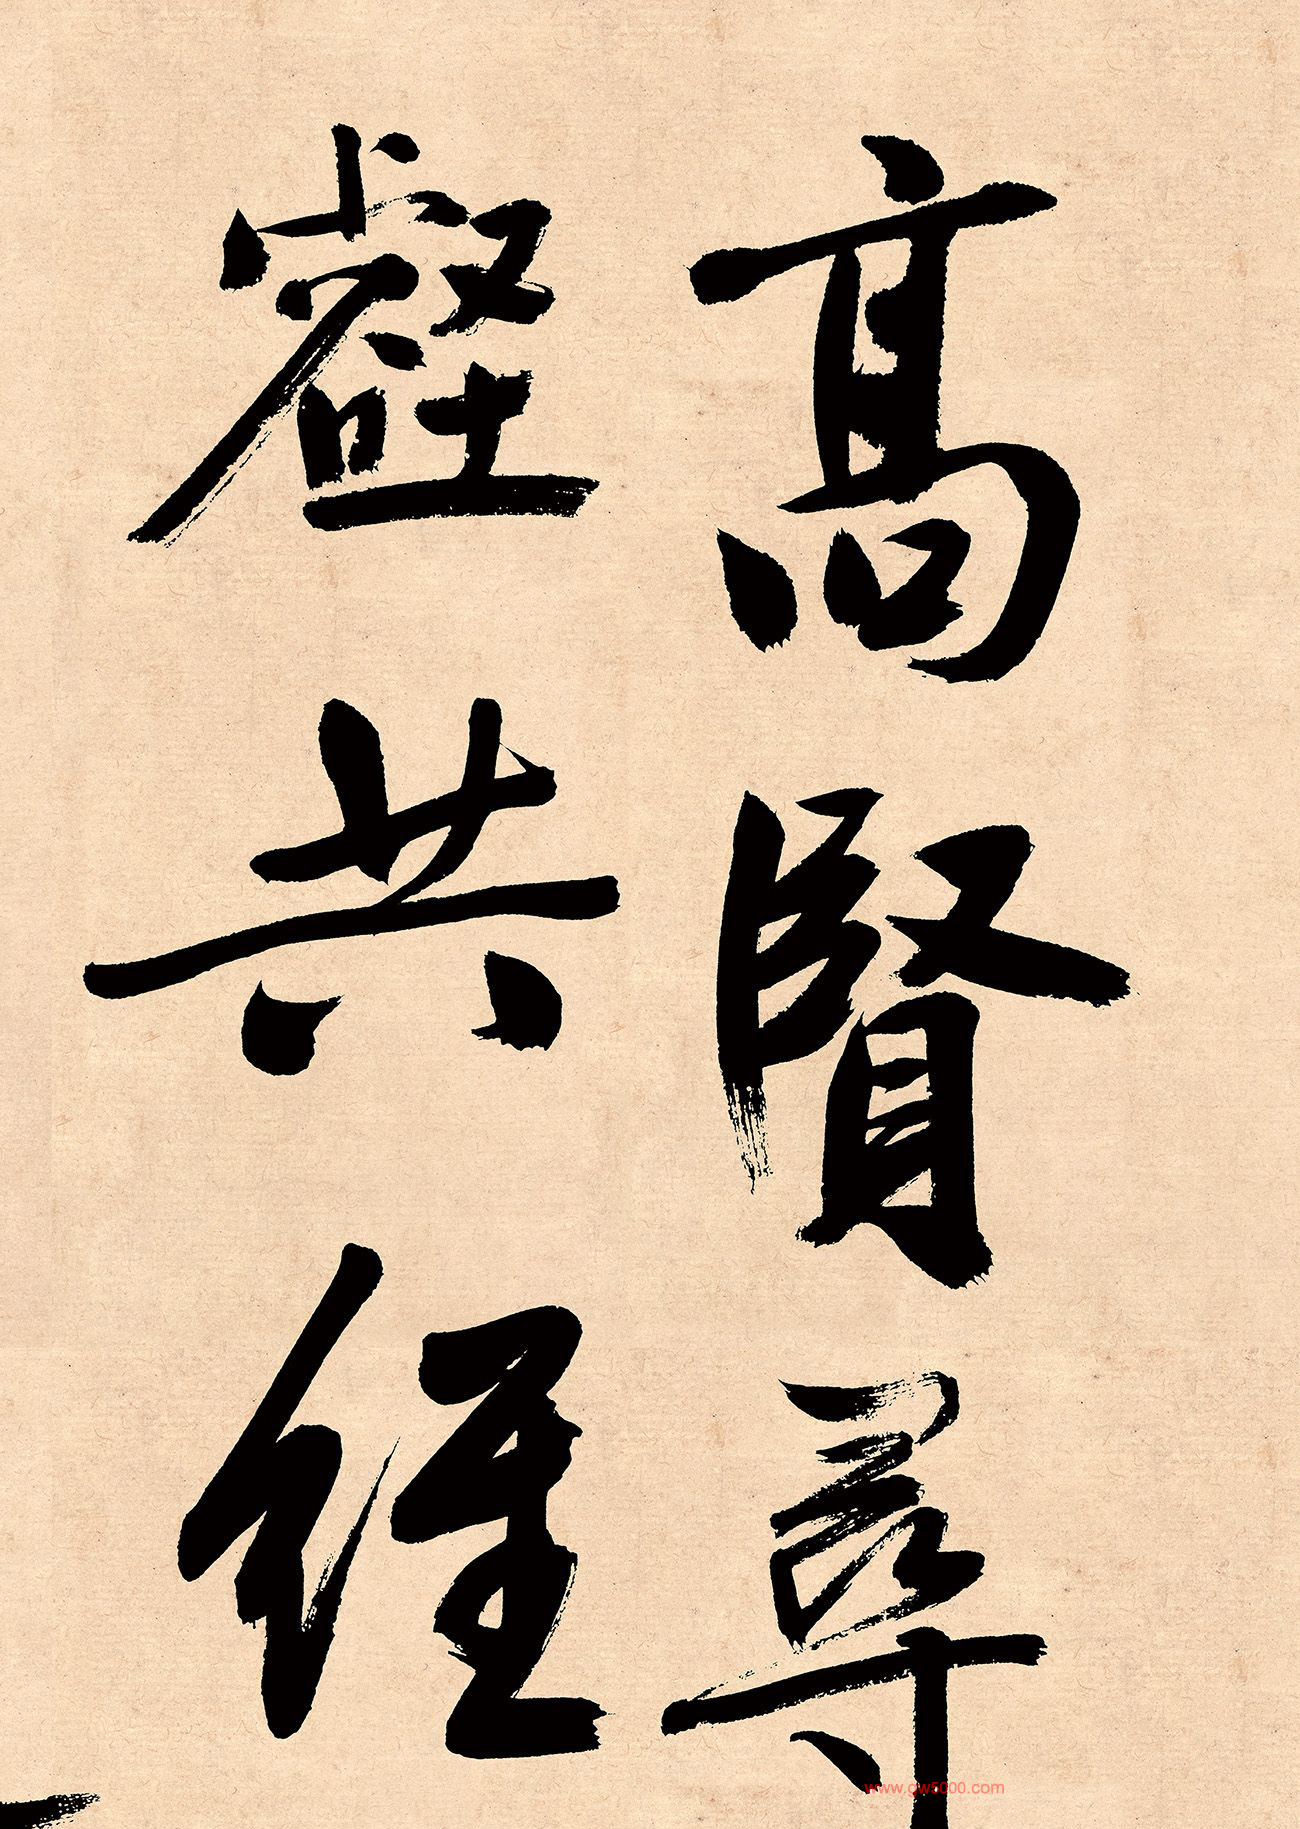 高賢尋
壑共經
www.gw5000.com